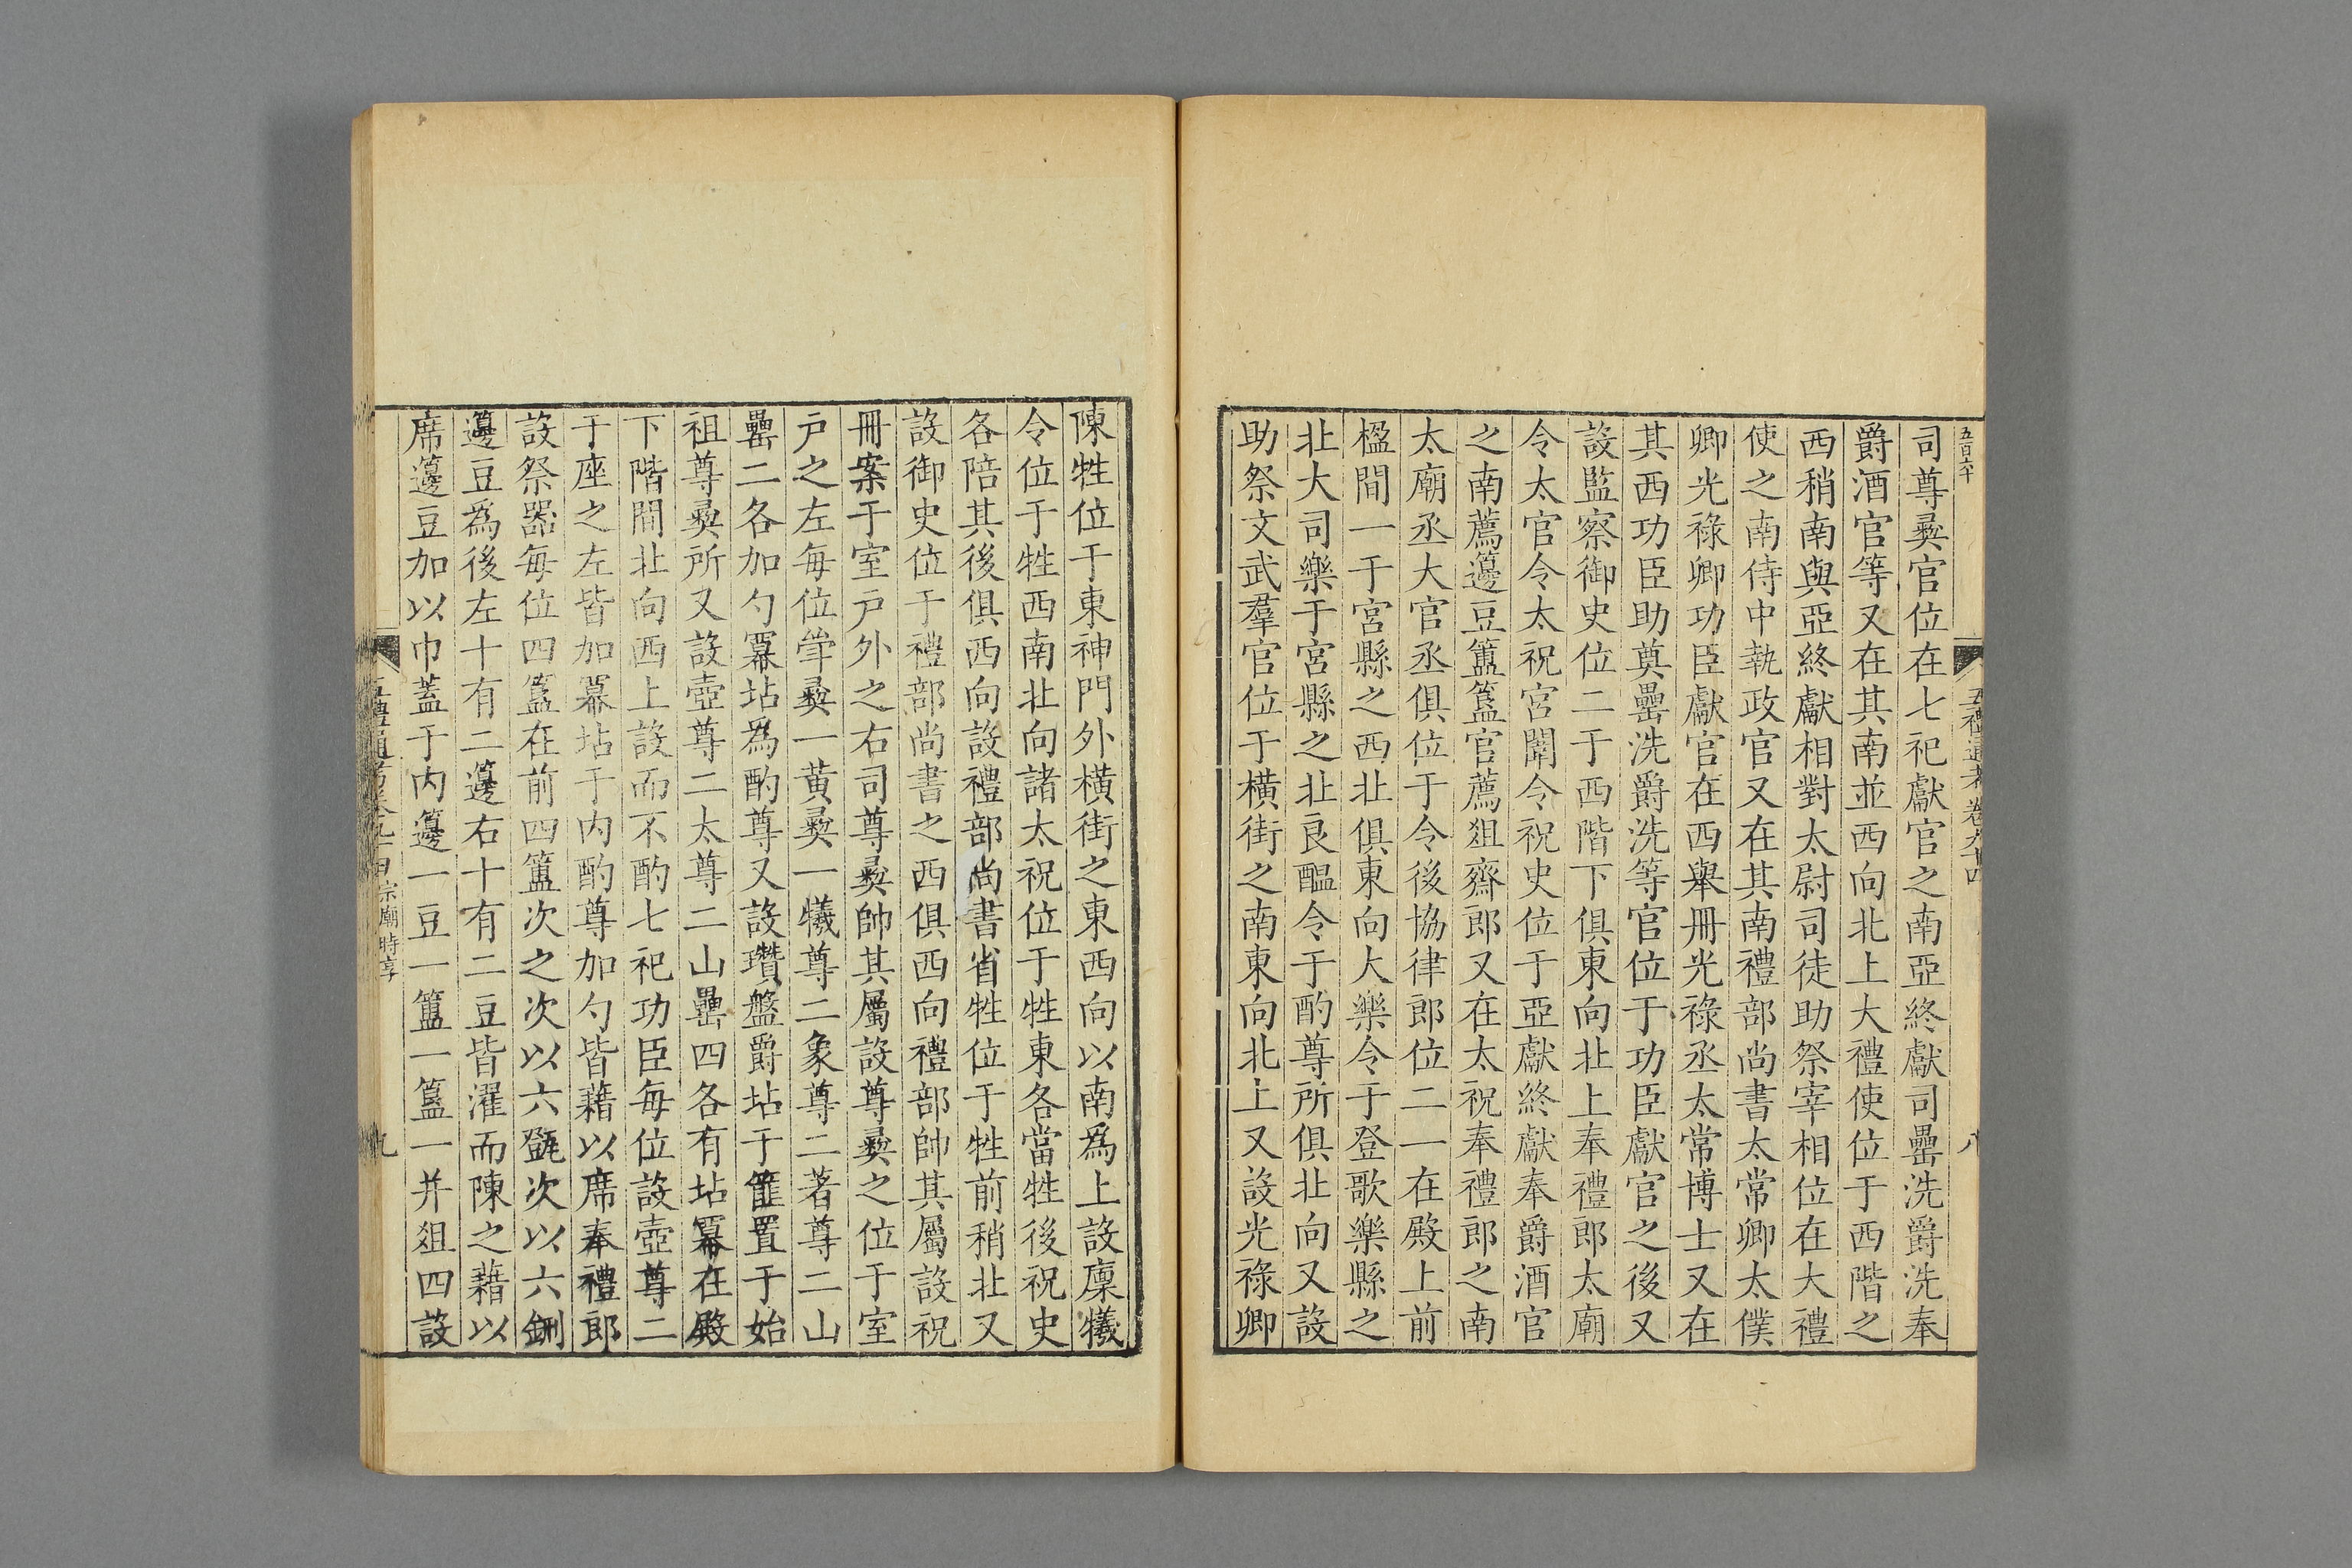 五百六十
五禮通考卷九十四
八
司尊彞官位在七祀獻官之南亞終獻司罍洗爵洗奉
爵酒官等又在其南並西向北上大禮使位于西階之
西稍南與亞終獻相對太尉司徒助祭宰相位在大禮
使之南侍中執政官又在其南禮部尚書太常卿太僕
卿光祿卿功臣獻官在西舉冊光祿丞太常博士又在
其西功臣助奠罍洗爵洗等官位于功臣獻官之後又
設監察御史位二于西階下俱東向北上奉禮郎太廟
令太官令太祝宮闈令祝史位于亞獻終獻奉爵酒官
之南薦籩豆簠簋官薦俎齋郎又在太祝奉禮郎之南
太廟丞大官丞俱位于令後協律郎位二一在殿上前
楹間一于宮縣之西北俱東向大樂令于登歌樂縣之
北大司樂于宮縣之北良醖令于酌尊所俱北向又設
助祭文武羣官位于橫街之南東向北上又設光祿卿
陳牲位于東神門外橫街之東西向以南為上設廩犧
令位于牲西南北向諸太祝位于牲東各當牲後祝史
各陪其後俱西向設禮部尚書省牲位于牲前稍北又
設御史位于禮部尚書之西俱西向禮部帥其屬設祝
冊案于室戸外之右司尊彞帥其屬設尊彞之位于室
戸之左每位斝彞一黃彞一犧尊二象尊二著尊二山
罍二各加勺冪坫為酌尊又設瓚盤爵坫于篚置于始
祖尊彞所又設壺尊二太尊二山罍四各有坫冪在殿
下階間北向西上設而不酌七祀功臣每位設壺尊二
于座之左皆加冪坫于内酌尊加勺皆藉以席奉禮郎
設祭器每位四簋在前四簠次之次以六㽅次以六鉶
籩豆為後左十有二籩右十有二豆皆濯而陳之藉以
席籩豆加以巾蓋于内籩一豆一簠一簋一并俎四設
宗廟時享
九